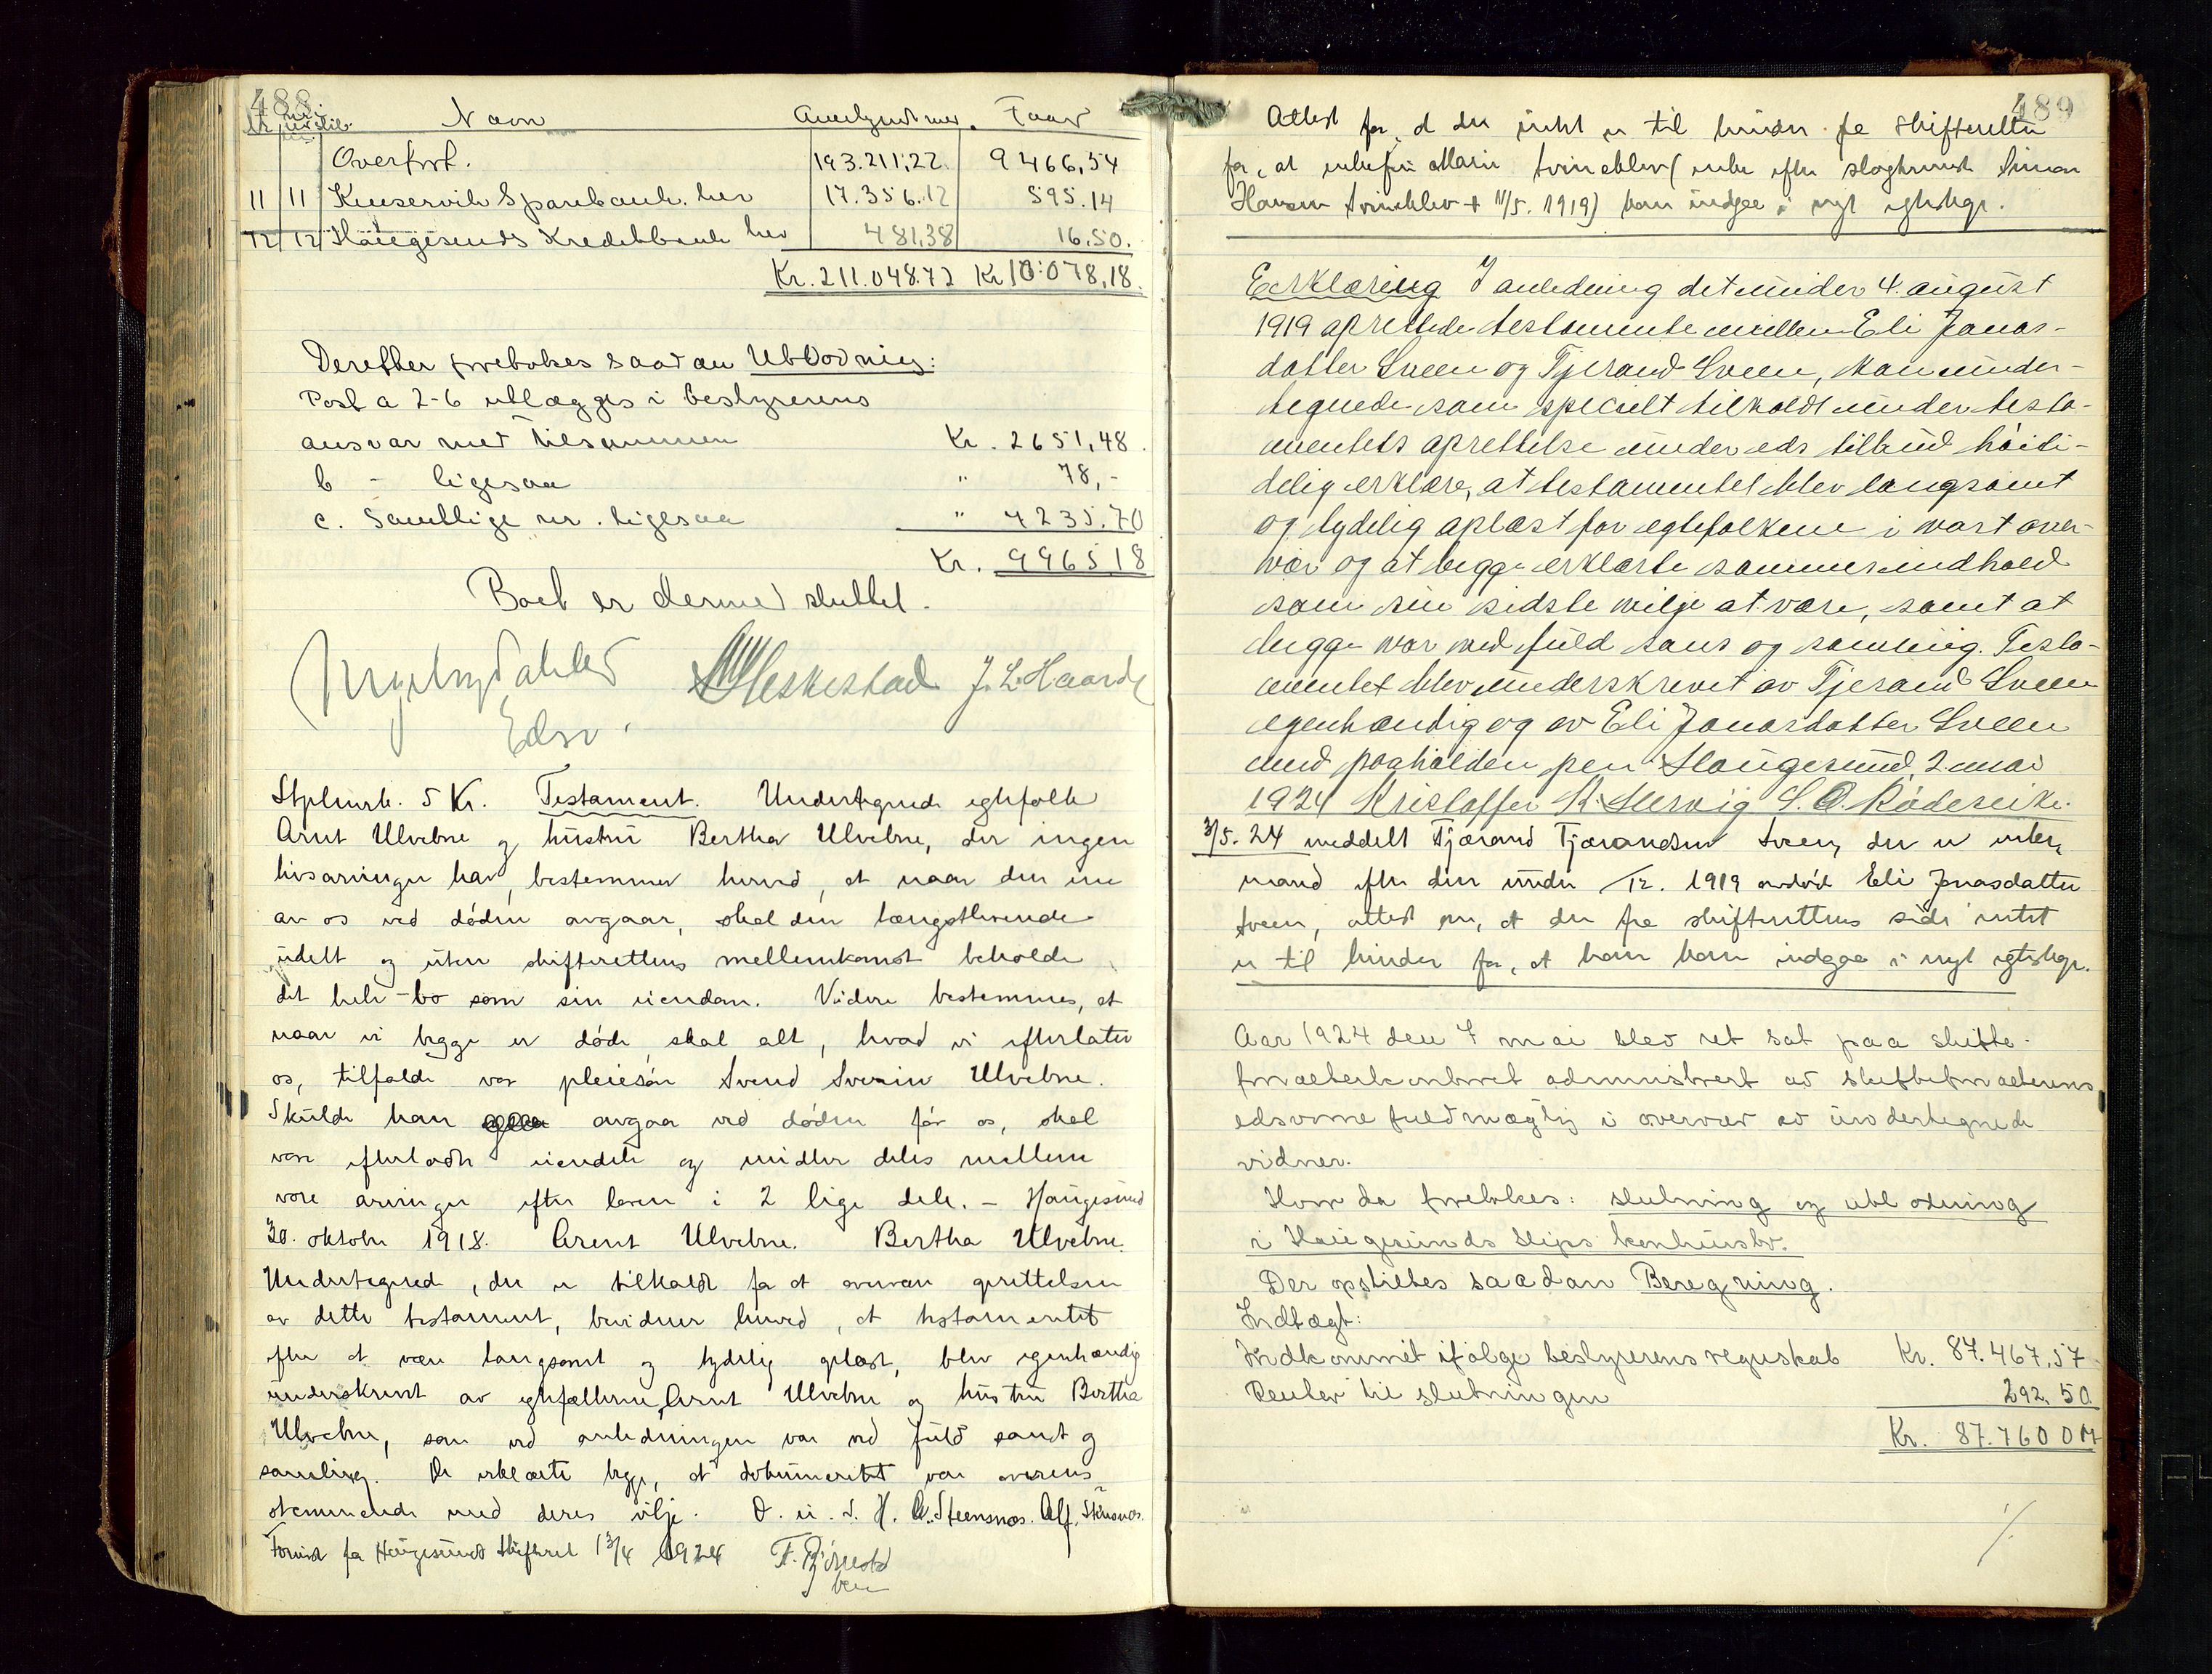 488
Navn Faar
Overført. 193.211,22 9466,54
11 11 Kinservik Sparebank her 17.356.12 595.14
12 12 Haugesunds Kreditbank her 481,38 16,50.
Kr. 211.048.72 Kr 10.078,18.
Derefter foretokes saadan Utlodning:
Post a 2-6 utlægges i bestyrerens
ansvar med tilsammen Kr. 2651,48
b - ligesaa " 78,-
c. Samtlige nr. ligesaa " 7235.70
Kr. 9965 18
Boet er dermed sluttet.
Heskestad J. L. Haarde
Edsv.
Stplmrk. 5 Kr. Testament. Undertegnede egtefolk
Arnt Ulvebne og hustru Bertha Ulvebne, der ingen
livsarvinger har, bestemmer herved, at naar den ene
av os ved døden avgaar, skal den længstlevende
udelt og uten skifterettens mellemkomst beholde
det hele bo som sin eiendom. Videre bestemmes, at
naar vi begge er døde, skal alt, hvad vi efterlater
os, tilfalde vor pleiesøn Svend Sverin Ulvebne.
Skulde han avgaa ved døden før os, skal
vore efterladte eiendele og midler deles mellem
vore arvinger efter loven i 2 lige dele. - Haugesund
30. oktober 1918. Arent Ulvebne. Bertha Ulvebne.
Undertegnede, der er tilkaldt for at overvære oprettelsen
av dette testament, bevidner herved, at testamentet
efter at være langsomt og tydelig oplæst, blev egenhændig
underskrevet av egtefællerne, Arnt Ulvebne og hustru Bertha
Ulvebne, som ved anledningen var ved fuld sands og
samling. De erklærte begge, at dokumentet var overens
stemmende med deres vilje. D. u. s. H. A. Steensnæs. Alf Steensnæs.
Forevist for Haugesund Skifteret 13/4 1924
489
Attest for, at der intet er til hinder fra skifteretten
for, at enkefru Marie Svineklev (enke efter
Hansen Svineklev + 11/5. 1919) kan indgaa i nyt egteskap.
Eerklæring I anledning det under 4. august
1919 oprettede testamente mellem Eli Jonas-
datter Sveen og Tjerand Sveen, kan under-
tegnede som specielt tilkaldt under testa-
mentets oprettelse under eds tilbud høiti-
delig erklære, at testamentet blev langsomt
og tydelig oplæst for egtefolkene i vort over-
vær og at begge erklærte sammes indhold
som sin sidste vilje at være, samt at
begge var ved fuld sans og samling. Testa-
mentet blev underskrevet av Tjerand Sveen
egenhændig og av Eli Jonasdatter Sveen
med paaholden pen Haugesund, 2. mai
1924 Kristoffer K. Hervig S. O. Rödseike.
3/5. 24 meddelt Tjærand Tjærandsen Sveen, der er enke,
mand efter den under /12. 1919 avdøde Eli Jonasdatter
Sveen, attest om, at der fra skifterettens side intet
er til hinder for, at han kan indgaa i nyt egteskap.
Aar 1924 den 7 mai blev ret sat paa skifte-
forvalterkontoret administrert av skifteforvalterens
edsvorne fuldmægtig i overvær av undertegnede
vidner.
Hvor da foretokes: slutning og utlodning
i Haugesunds Slips konkursbo.
Der opstilles saadan Beregning.
Indtægt:
Indkommet ifølge bestyrerens regnskab Kr. 87.467,57
Renter til slutningen 292,50
Kr. 87.760 07
./.